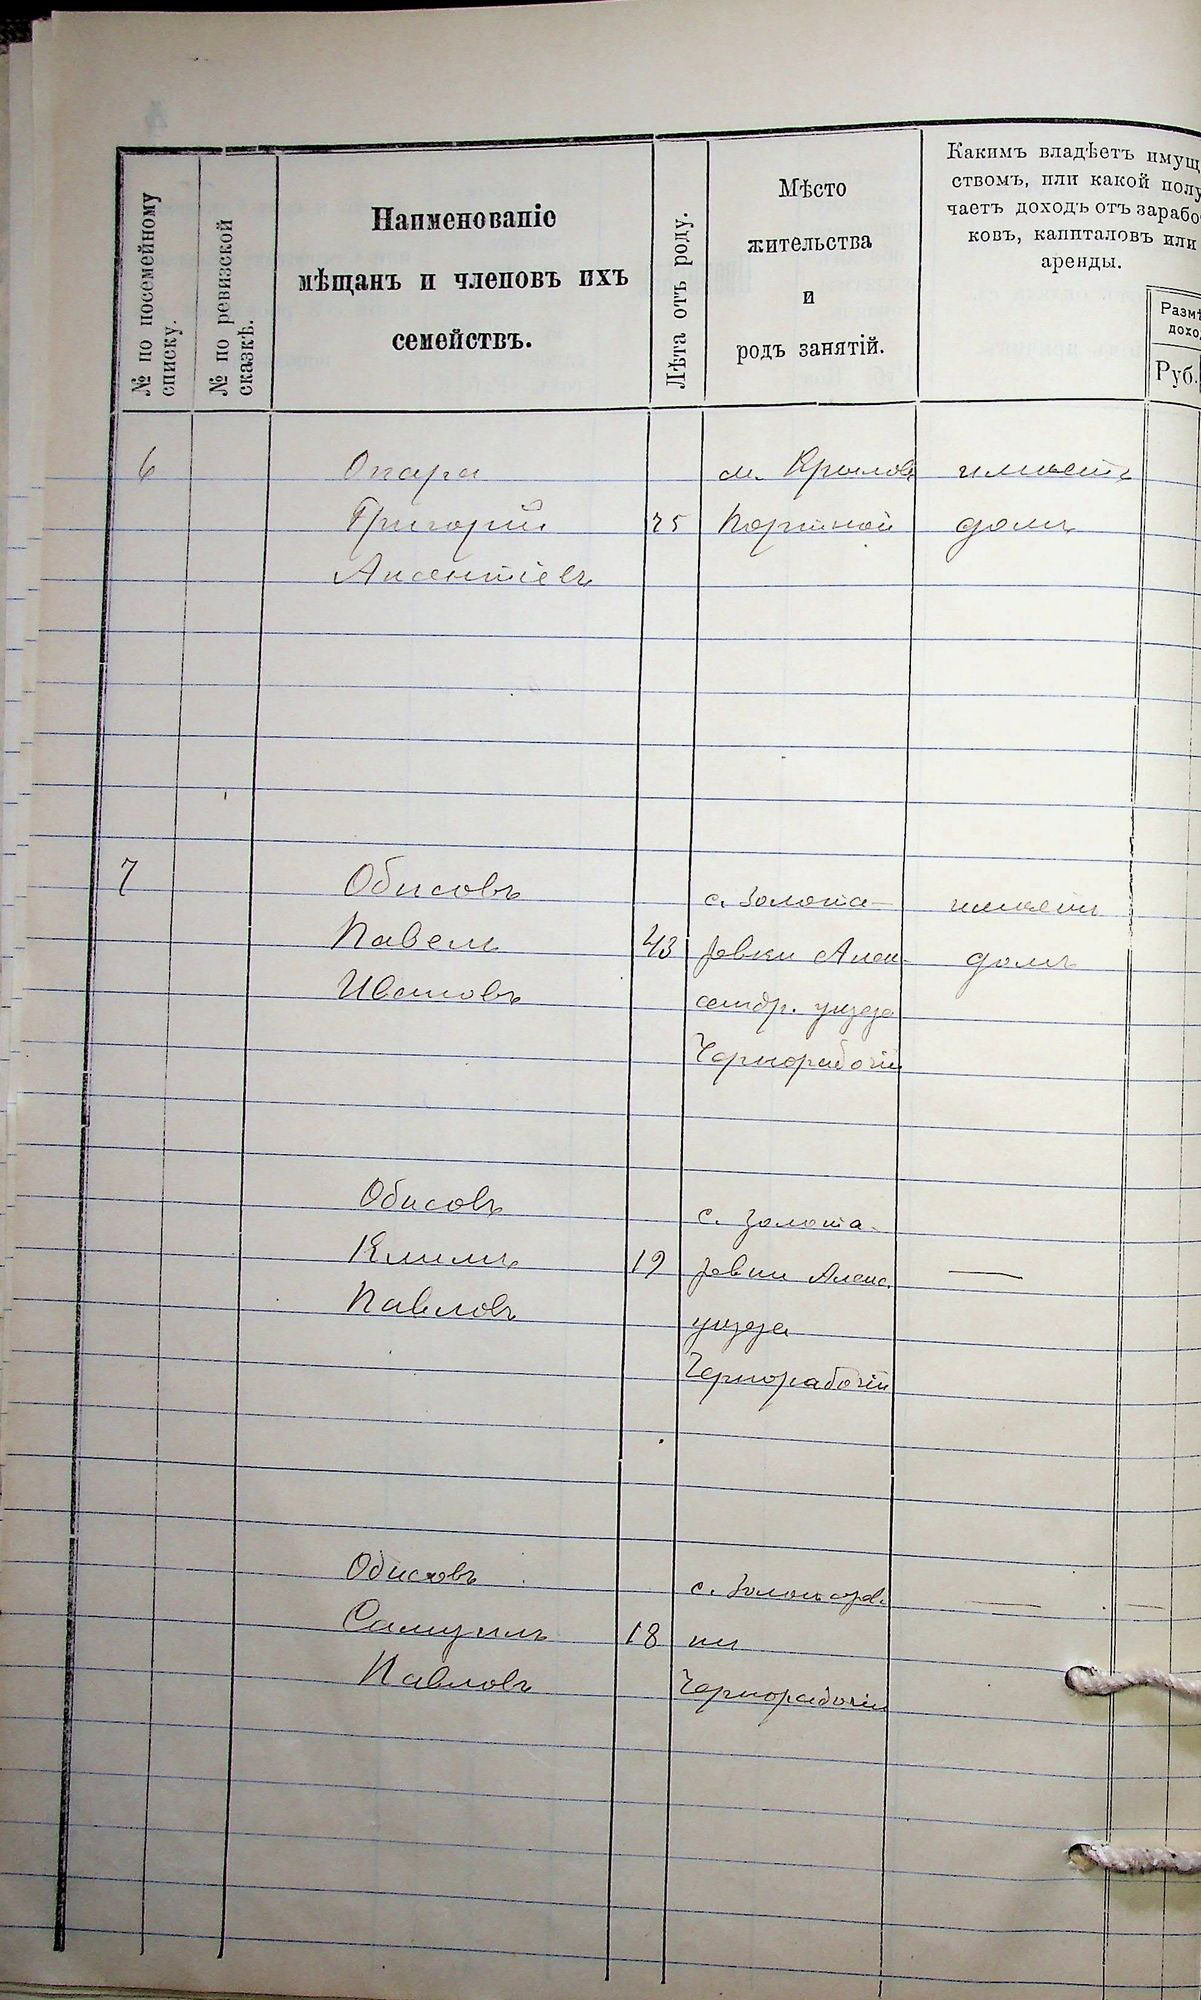 № по посемейному
списку.
№ по ревизской
сказкѣ.
Наименованіе
мѣщанъ и членовъ ихъ
семействъ.
Лѣта отъ роду.
Мѣсто
жительства
и
родъ занятій.
Какимъ владѣетъ имущ
ствомъ, или какой полу
чаетъ доходъ отъ зарабо
ковъ, капиталовъ или
аренды.
Размѣ
дохо
Руб.
6 Опара м. Крылов имѣетъ
Григорій 25 Портной домъ
Аксентіевъ
7 Обисовъ с. Золота- имѣетъ
Павелъ 43 ревки Алек- домъ
Ивановъ сандр. уѣзда
Чернорабочій
Обисовъ с. Золота-
Климъ 19 ревки Алекс. —
Павловъ уѣзда
Чернорабочій
Обисовъ с. Золотарев. — —
Самуилъ 18 ки
Павловъ Чернорабочій